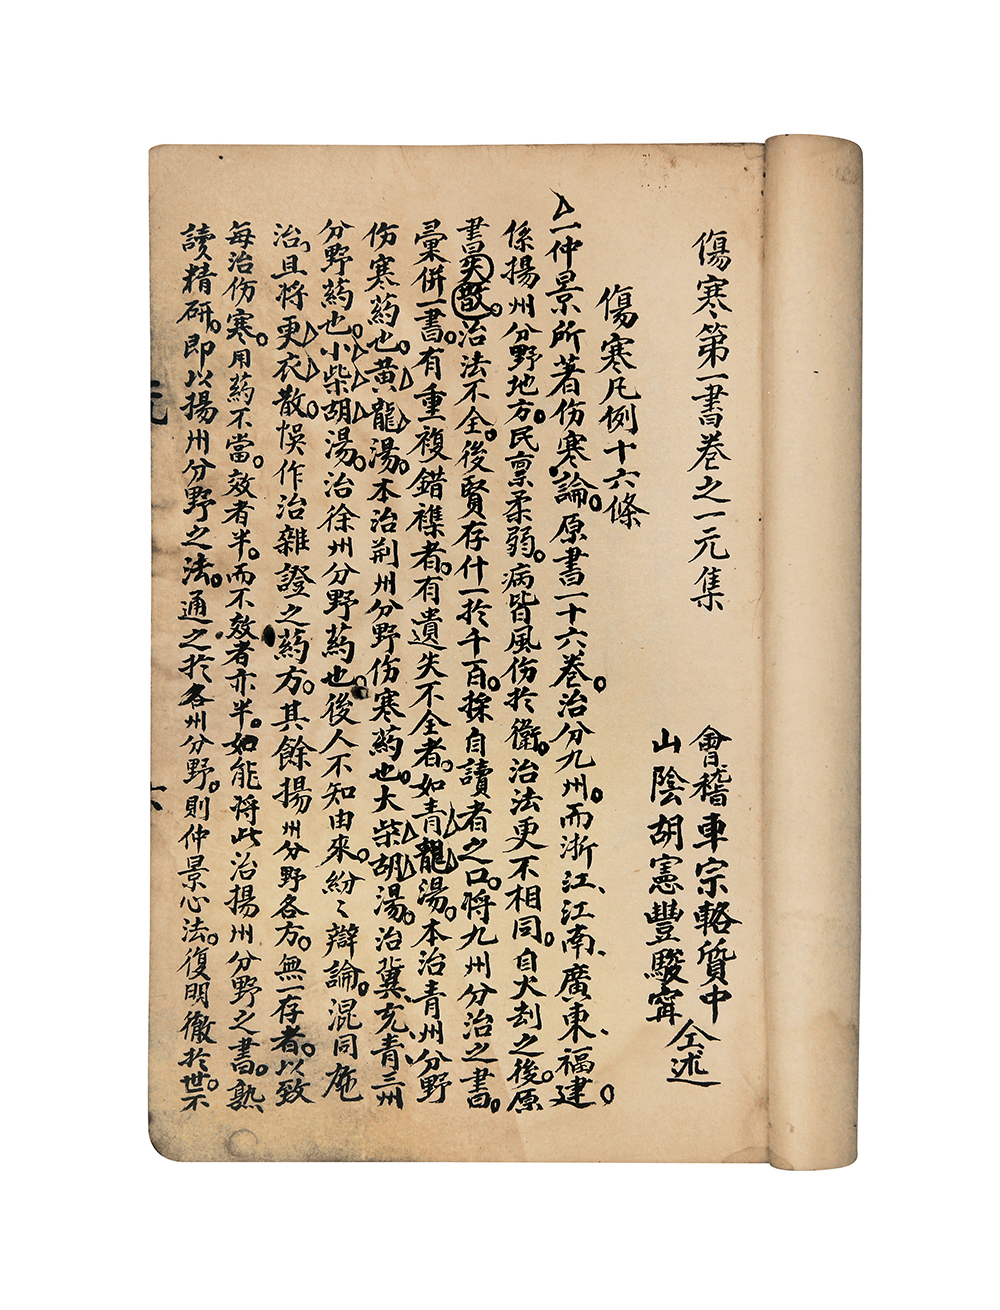 傷寒第一書卷之一元集
會稽車宗輅質中
山陰胡憲豐駿甯
仝述
傷寒凡例十六條
一仲景所著伤寒論。原書一十六卷。治分九州。而浙江、江南、廣東、福建。
係揚州分野地方。民禀柔弱。病皆風伤於衛。治法更不相同。自火刦之後。原
書失散。治法不全。後賢存什一於千百。採自讀者之口。将九州分治之書。
彙併一書。有重複錯襍者。有遺失不全者。如青龍湯。本治青州分野
伤寒葯也。黄龍湯。本治荊州分野伤寒葯也。大柴胡湯。治冀、兖、青三州
分野葯也。小柴胡湯。治徐州分野葯也。後人不知由來。紛〻辯論。混同施
治。且将更衣散。悞作治雜證之葯方。其餘揚州分野各方。無一存者。以致
每治伤寒。用葯不當。效者半。而不效者亦半。如能将此治揚州分野之書。熟
讀精研。即以揚州分野之法。通之於各州分野。則仲景心法。復明徹於世。不